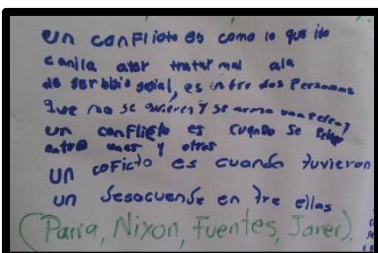 Un conflicto es como lo que iso
canlla ayer tratar mal ala
de serbisio soial, es entre dos Personas
que no se quieren y se arma una pelea
un conflicto es cuando se pelean
entre unos y otros
un coficto es cuando tuvieron
un desacuerdo en tre ellas
(Parra, Nixon, Fuentes, Janer).